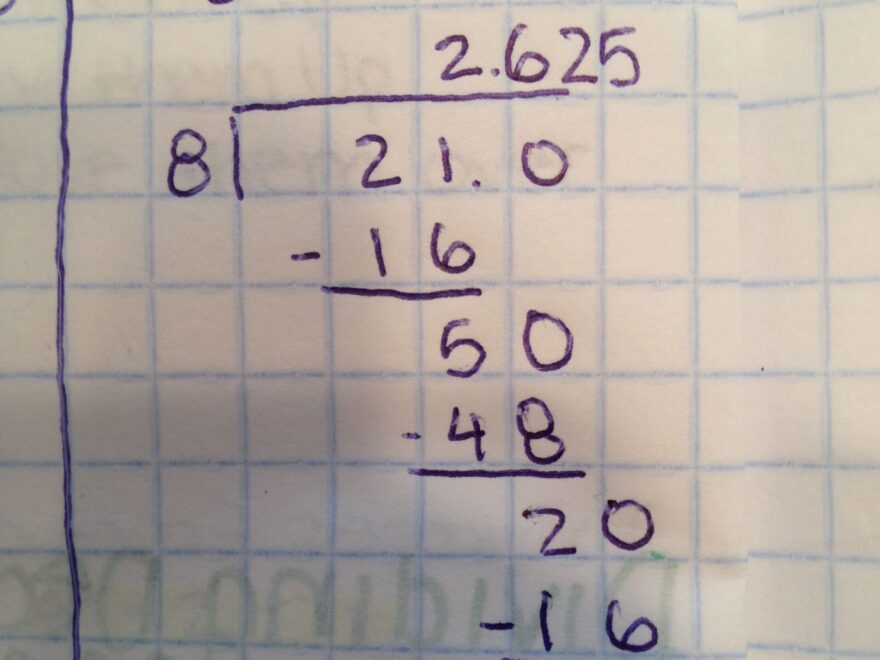 2.625
8 21.0
-16
50
-48
20
-16